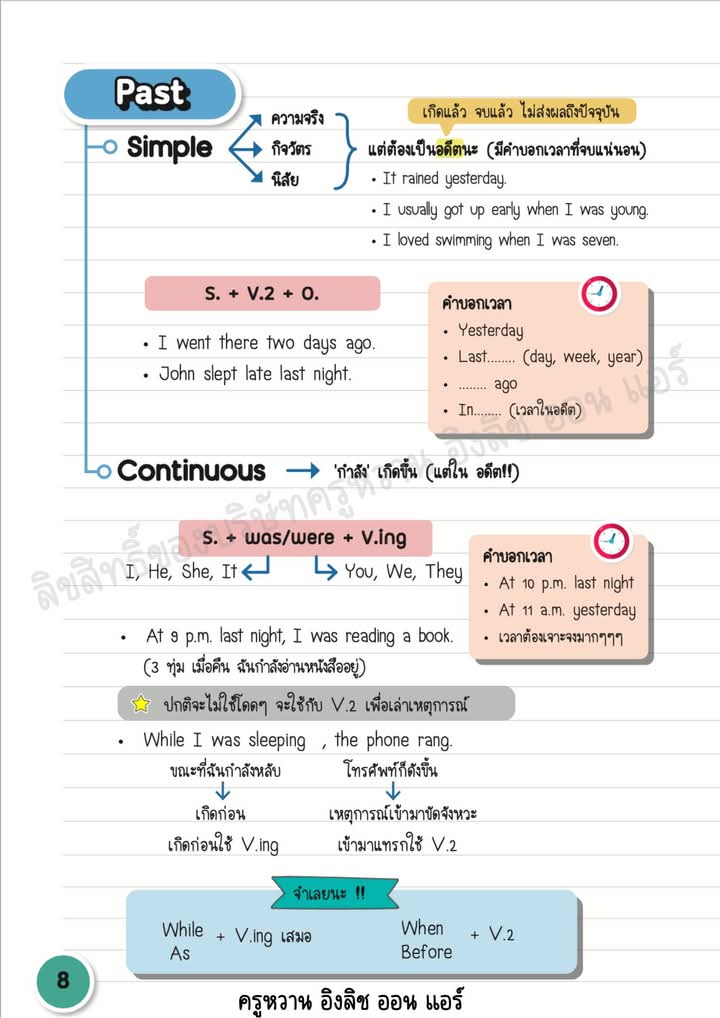 Past
เกิดแล้ว จบแล้ว ไม่ส่งผลถึงปัจจุบัน
Simple
ความจริง
กิจวัตร
นิสัย
แต่ต้องเป็นอดีตนะ (มีคำบอกเวลาที่จบแน่นอน)
• It rained yesterday.
• I usually got up early when I was young.
• I loved swimming when I was seven.
S. + V.2 + O.
• I went there two days ago.
• John slept late last night.
คำบอกเวลา
• Yesterday
• Last........ (day, week, year)
• ........ ago
• In........ (เวลาในอดีต)
Continuous
'กำลัง' เกิดขึ้น (แต่ใน อดีต!!)
S. + was/were + V.ing
I, He, She, It
You, We, They
คำบอกเวลา
• At 10 p.m. last night
• At 11 a.m. yesterday
• เวลาต้องเจาะจงมากๆๆๆ
• At 9 p.m. last night, I was reading a book.
(3 ทุ่ม เมื่อคืน ฉันกำลังอ่านหนังสืออยู่)
ปกติจะไม่ใช้โดดๆ จะใช้กับ V.2 เพื่อเล่าเหตุการณ์
• While I was sleeping , the phone rang.
ขณะที่ฉันกำลังหลับ โทรศัพท์ก็ดังขึ้น
เกิดก่อน เหตุการณ์เข้ามาขัดจังหวะ
เกิดก่อนใช้ V.ing เข้ามาแทรกใช้ V.2
จำเลยนะ !!
While
As
+ V.ing เสมอ
When
Before
+ V.2
8
ครูหวาน อิงลิช ออน แอร์
ลิขสิทธิ์ของบริษัทครูหวาน อิงลิช ออน แอร์